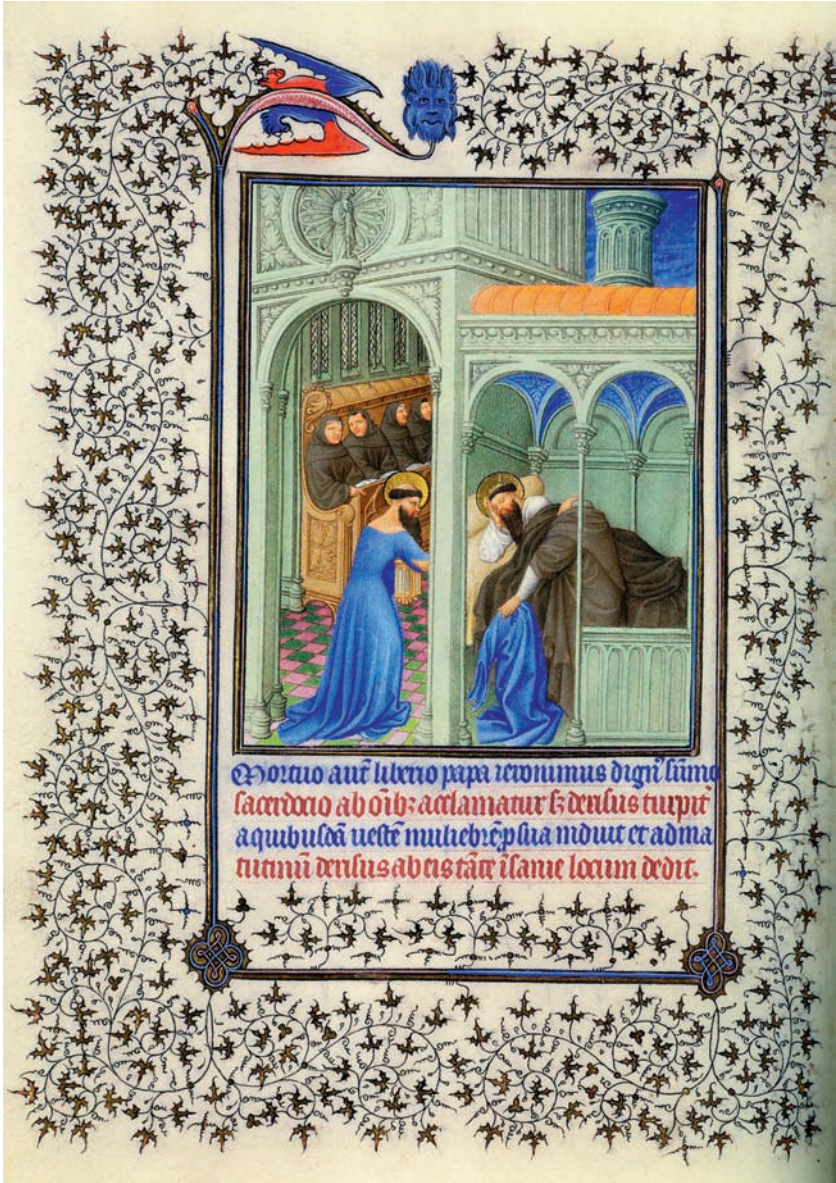 Mortuo aut̄ liberio papa ieronimus dign̄ sūmo
sacerdocio ab oībꝫ acclamatur sꝫ derisus turpit̄
a quibusdā uestē muliebrē ꝑ sua induit et ad ma
tutinū derisus ab eis tāte īsanie locum dedit.